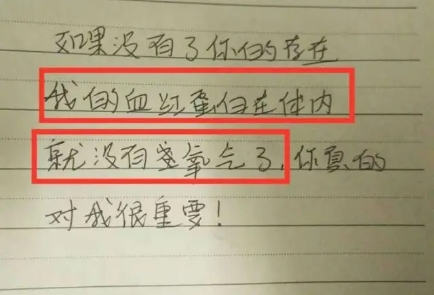 如果没有了你们的存在
我们的血红蛋白在体内
就没有氢氧气了,你真的
对我很重要!